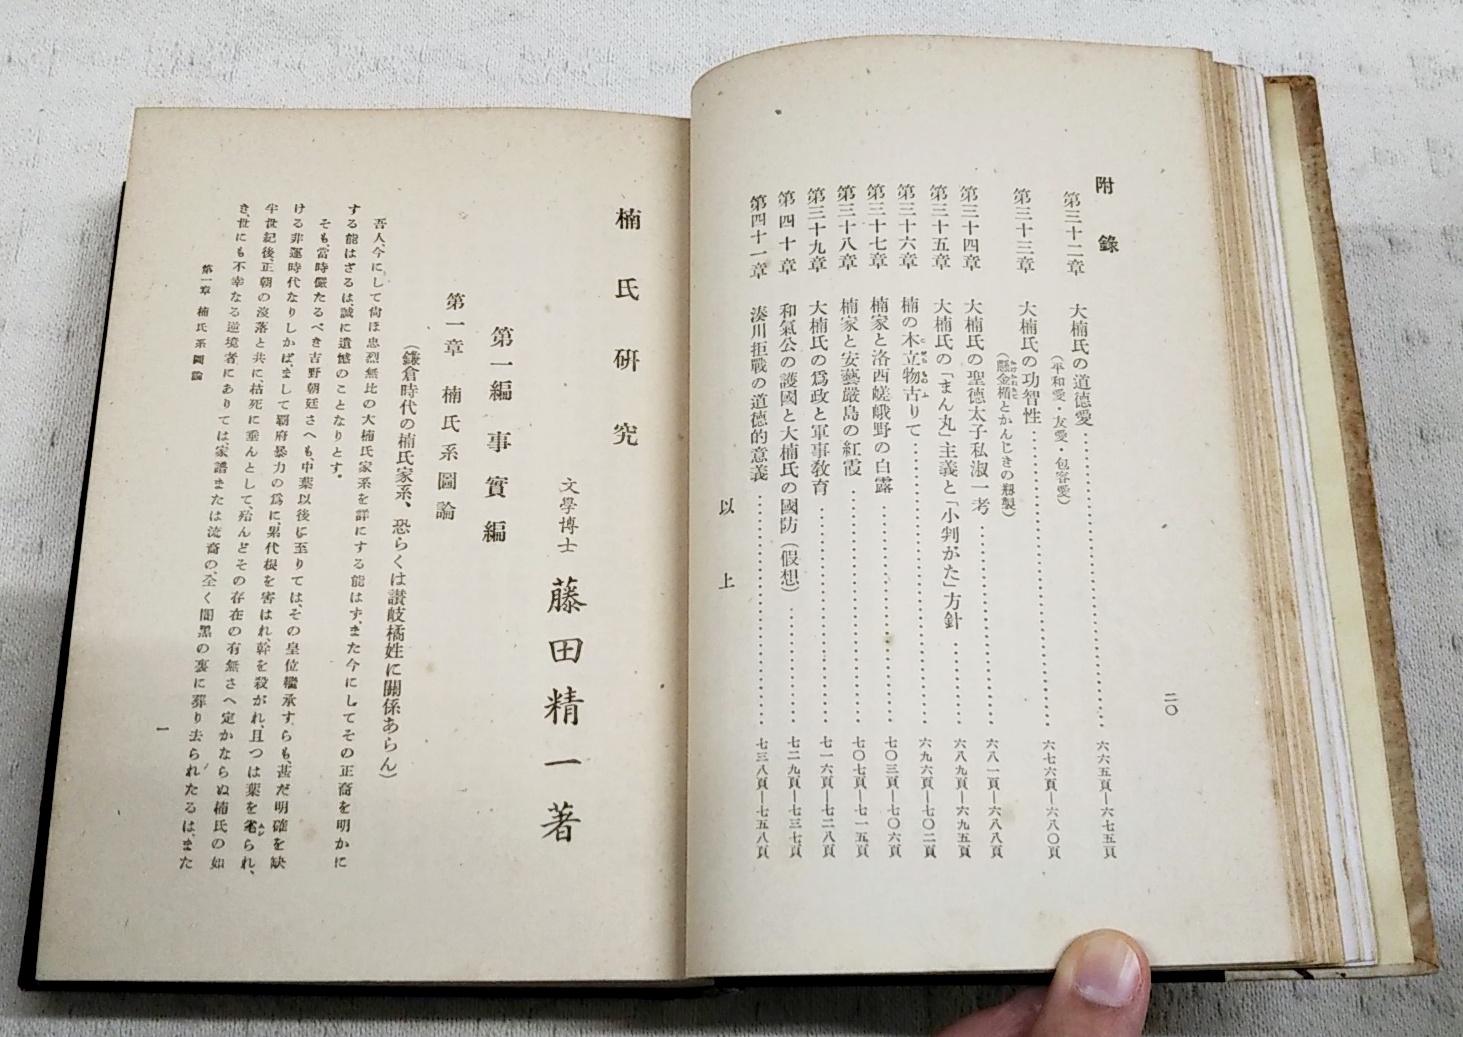 二〇
附錄
第三十二章 大楠氏の道德愛 六六五頁―六七五頁
(平和愛・友愛・包容愛)
第三十三章 大楠氏の功智性 六七六頁―六八〇頁
(懸金楯とかんじきの剏製)
第三十四章 大楠氏の聖德太子私淑一考 六八一頁―六八八頁
第三十五章 大楠氏の「まん丸」主義と「小判がた」方針 六八九頁―六九五頁
第三十六章 楠の木立物古りて 六九六頁―七〇二頁
第三十七章 楠家と洛西嵯峨野の白露 七〇三頁―七〇六頁
第三十八章 楠家と安藝嚴島の紅霞 七〇七頁―七一五頁
第三十九章 大楠氏の爲政と軍事敎育 七一六頁―七二八頁
第四十章 和氣公の護國と大楠氏の國防(假想) 七二九頁―七三七頁
第四十一章 湊川拒戰の道德的意義 七三八頁―七五八頁
以上
楠氏硏究
文學博士 藤田精一著
第一編 事實編
第一章 楠氏系圖論
(鎌倉時代の楠氏家系、恐らくは讃岐橘姓に關係あらん)
吾人今にして尙ほ忠烈無比の大楠氏家系を詳にする能はず、また今にしてその正裔を明かに
する能はざるは、誠に遺憾のことなりとす。
そも、當時儼たるべき吉野朝廷さへも、中葉以後に至りては、その皇位繼承すらも甚だ明確を缺
ける非運時代なりしかば、まして覇府暴力の爲に、累代根を害はれ、幹を殺がれ、且つは葉を毟られ、
半世紀後、正朝の沒落と共に、枯死に垂んとして、殆んどその存在の有無さへ定かならぬ楠氏の如
き、世にも不幸なる逆境者にありては、家譜または流裔の、全く闇黑の裏に葬り去られたるは、また
第一章 楠氏系圖論
一